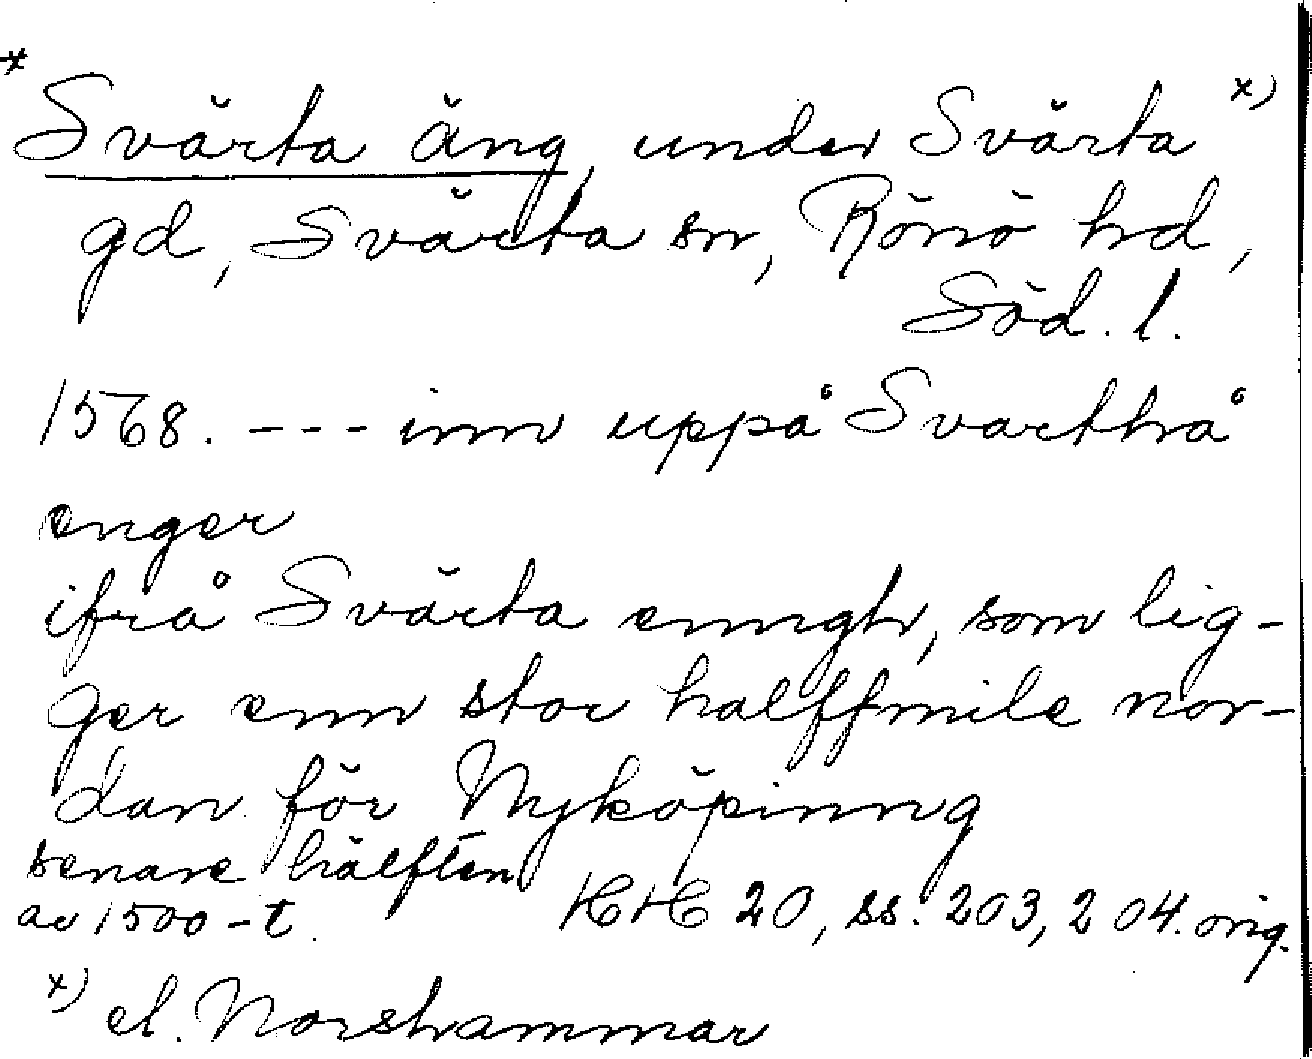 *
Svärta äng, under Svärta x)
gd, Svärta sn, Rönö hd,
Söd. l.
1568. --- inn uppå Svarthå
enger
ifrå Svärta enngh, som lig-
ger enn stor halffmile nor-
dan för Nyköpinng
senare hälften
av 1500-t.
HH 20, ss. 203, 204. orig.
x) el. Norshammar